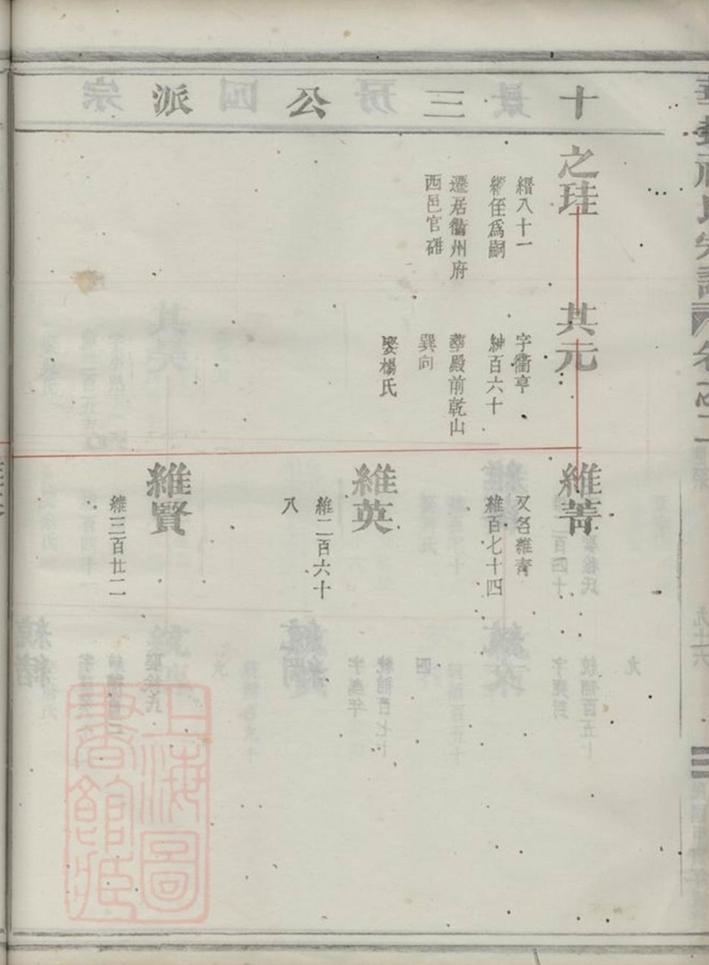 十三公派
之珪
縉八十一
繼侄爲嗣
遷居衢州府
西邑官碓
其元
字衢亨
紳百六十
葬殿前乾山
巽向
娶楊氏
維菁
又名維青
維百七十四
維英
維二百六十
八
維賢
維三百廿二
上海圖
書館藏